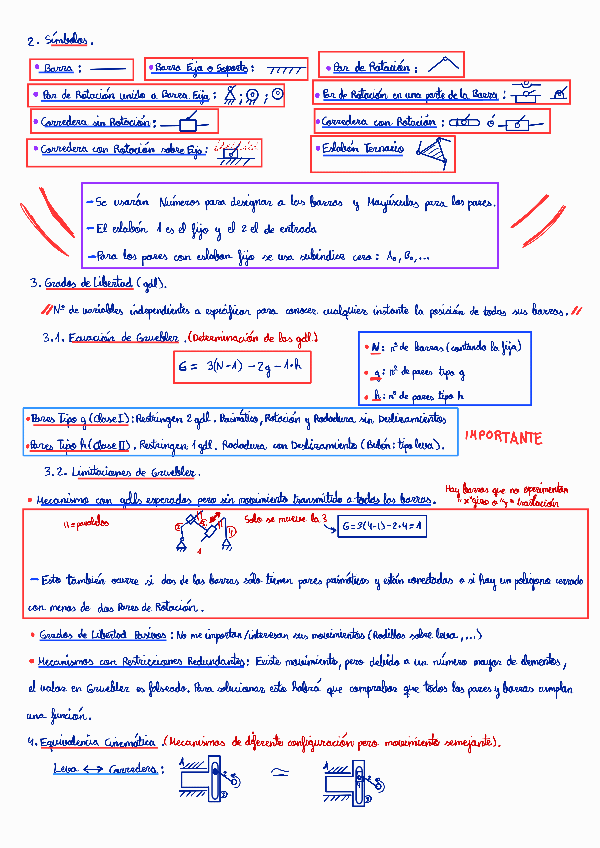 2. Símbolos.
• Barra :
• Barra Fija o Soporte :
• Par de Rotación :
• Par de Rotación unido a Barra Fija : ; ;
• Par de Rotación en una parte de la Barra :
• Corredera sin Rotación :
• Corredera con Rotación : ó
• Corredera con Rotación sobre Fijo :
• Eslabón Ternario
- Se usarán Números para designar a las barras y Mayúsculas para los pares.
- El eslabón 1 es el fijo y el 2 el de entrada
- Para los pares con eslabón fijo se usa subíndice cero: A₀, B₀, ...
3. Grados de Libertad (gdl).
"Nº de variables independientes a especificar para conocer cualquier instante la posición de todas sus barras."
3.1. Ecuación de Gruebler. (Determinación de los gdl.)
G = 3(N-1) - 2g - 1·h
• N: nº de barras (contando la fija)
• g: nº de pares tipo g
• h: nº de pares tipo h
• Pares Tipo g (Clase I): Restringen 2 gdl. Prismático, Rotación y Rodadura sin Deslizamientos
• Pares Tipo h (Clase II). Restringen 1 gdl. Rodadura con Deslizamiento (Bulón: tipo leva).
IMPORTANTE
3.2. Limitaciones de Gruebler.
• Mecanismo con gdls esperados pero sin movimiento transmitido a todas las barras.
Hay barras que no experimentan
"x" giro o "y" traslación
11 = paralelos
Solo se mueve la 3
G = 3(4-1) - 2·4 = 1
- Esto también ocurre si dos de las barras sólo tienen pares prismáticos y están conectadas o si hay un polígono cerrado
con menos de dos Pares de Rotación.
• Grados de Libertad Pasivos: No me importan/interesan sus movimientos (Rodillos sobre leva, ...)
• Mecanismos con Restricciones Redundantes: Existe movimiento, pero debido a un número mayor de elementos,
el valor en Gruebler es falseado. Para solucionar esto habrá que comprobar que todos los pares y barras cumplan
una función.
4. Equivalencia Cinemática. (Mecanismos de diferente configuración pero movimiento semejante).
Leva ↔ Corredera :